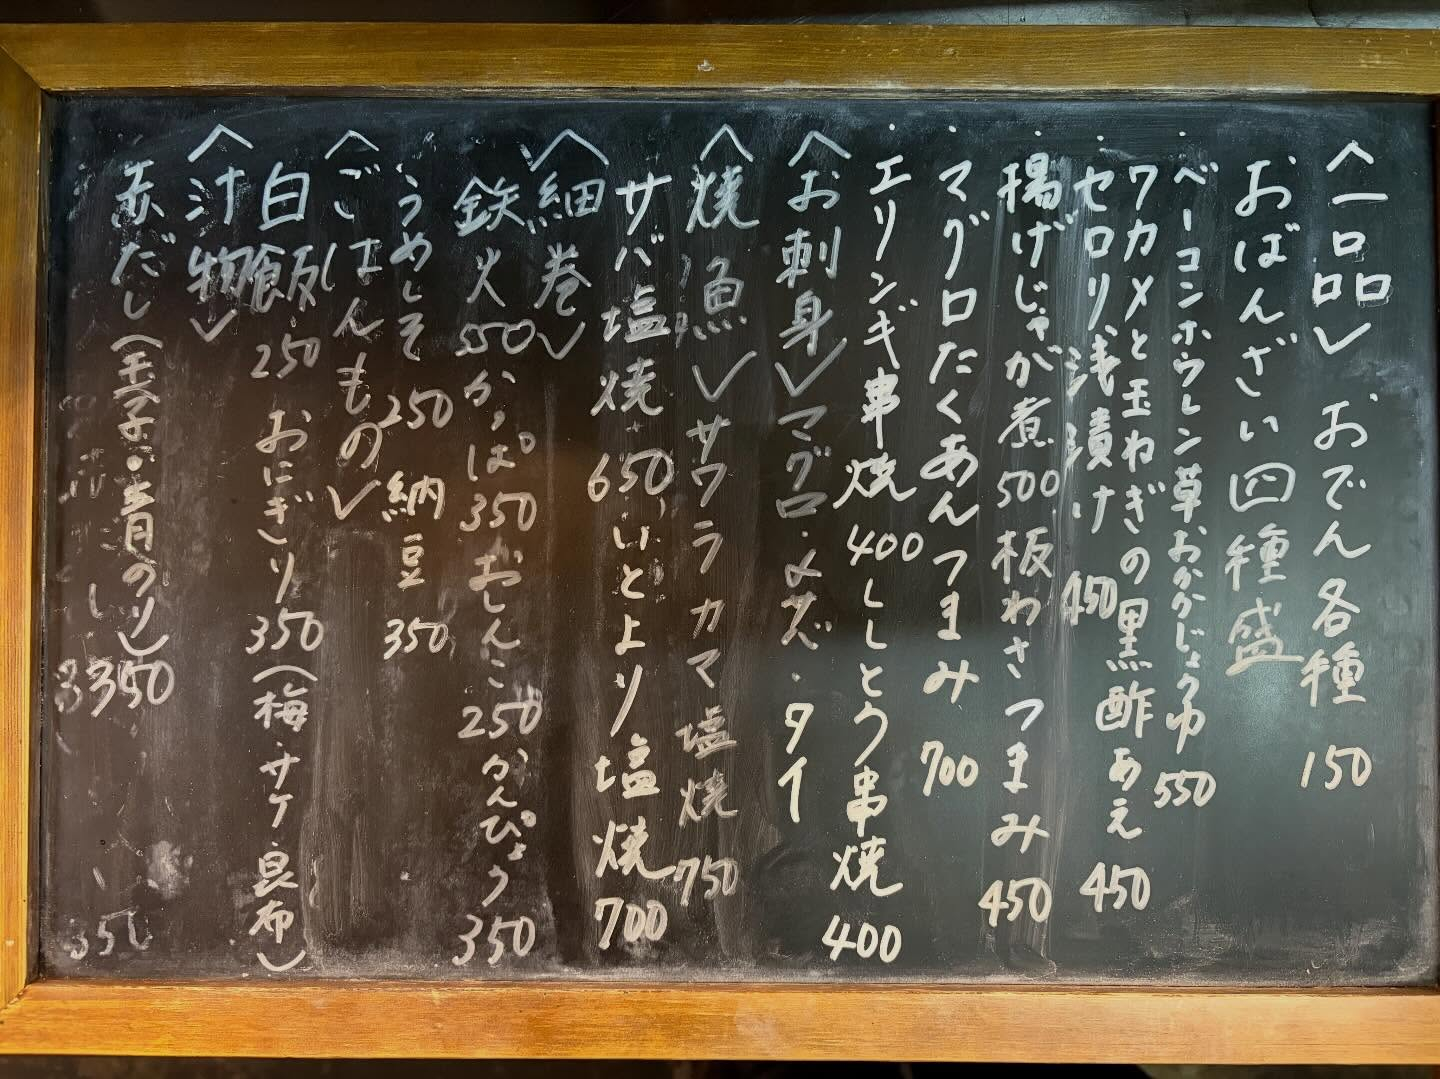 〈一品〉 おでん各種 150
おばんざい四種盛
・ベーコンホウレン草おかかじょうゆ 550
ワカメと玉ねぎの黒酢あえ 450
・セロリ浅漬け 450
・揚げじゃが煮 500 板わさつまみ 450
・マグロたくあんつまみ 700
・エリンギ串焼 400 ししとう串焼 400
〈お刺身〉マグロ・〆サバ・タイ
〈焼魚〉サワラカマ塩焼 750
サバ塩焼 650 いとより塩焼 700
〈細巻〉
鉄火 550 かっぱ 350 おしんこ 250 かんぴょう 350
うめしそ 250 納豆 350
〈ごはんもの〉
白飯 250 おにぎり 350 (梅・サケ・昆布)
〈汁物〉
赤だし(玉子・青のり) 350